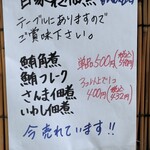 テーブルにありますので
ご賞味下さい。
鮪角煮 単品500円(税込540円)
鮪フレーク
さんま佃煮
400円(税込432円)
いわし佃煮
今売れています!!